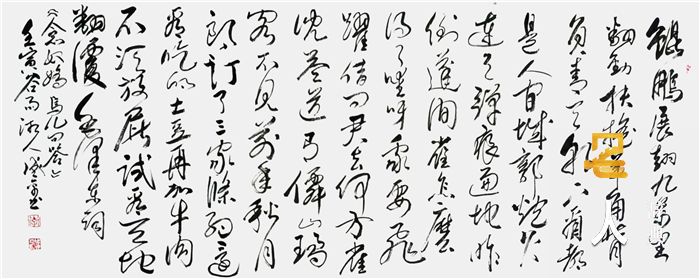 鲲鹏展翅九万里
翻动扶摇羊角背
负青天朝下看都
是人间城郭炮火
连天弹痕遍地吓
倒蓬间雀怎么
得了哎呀我要飞
躍借问君去何方雀
儿答道有仙山琼
阁不见前年秋月
朗订了三家条约还
有吃的土豆再加牛肉
不须放屁试看天地
翻覆毛泽东词
《念奴娇鸟儿问答》
壬寅谷雨湖人书